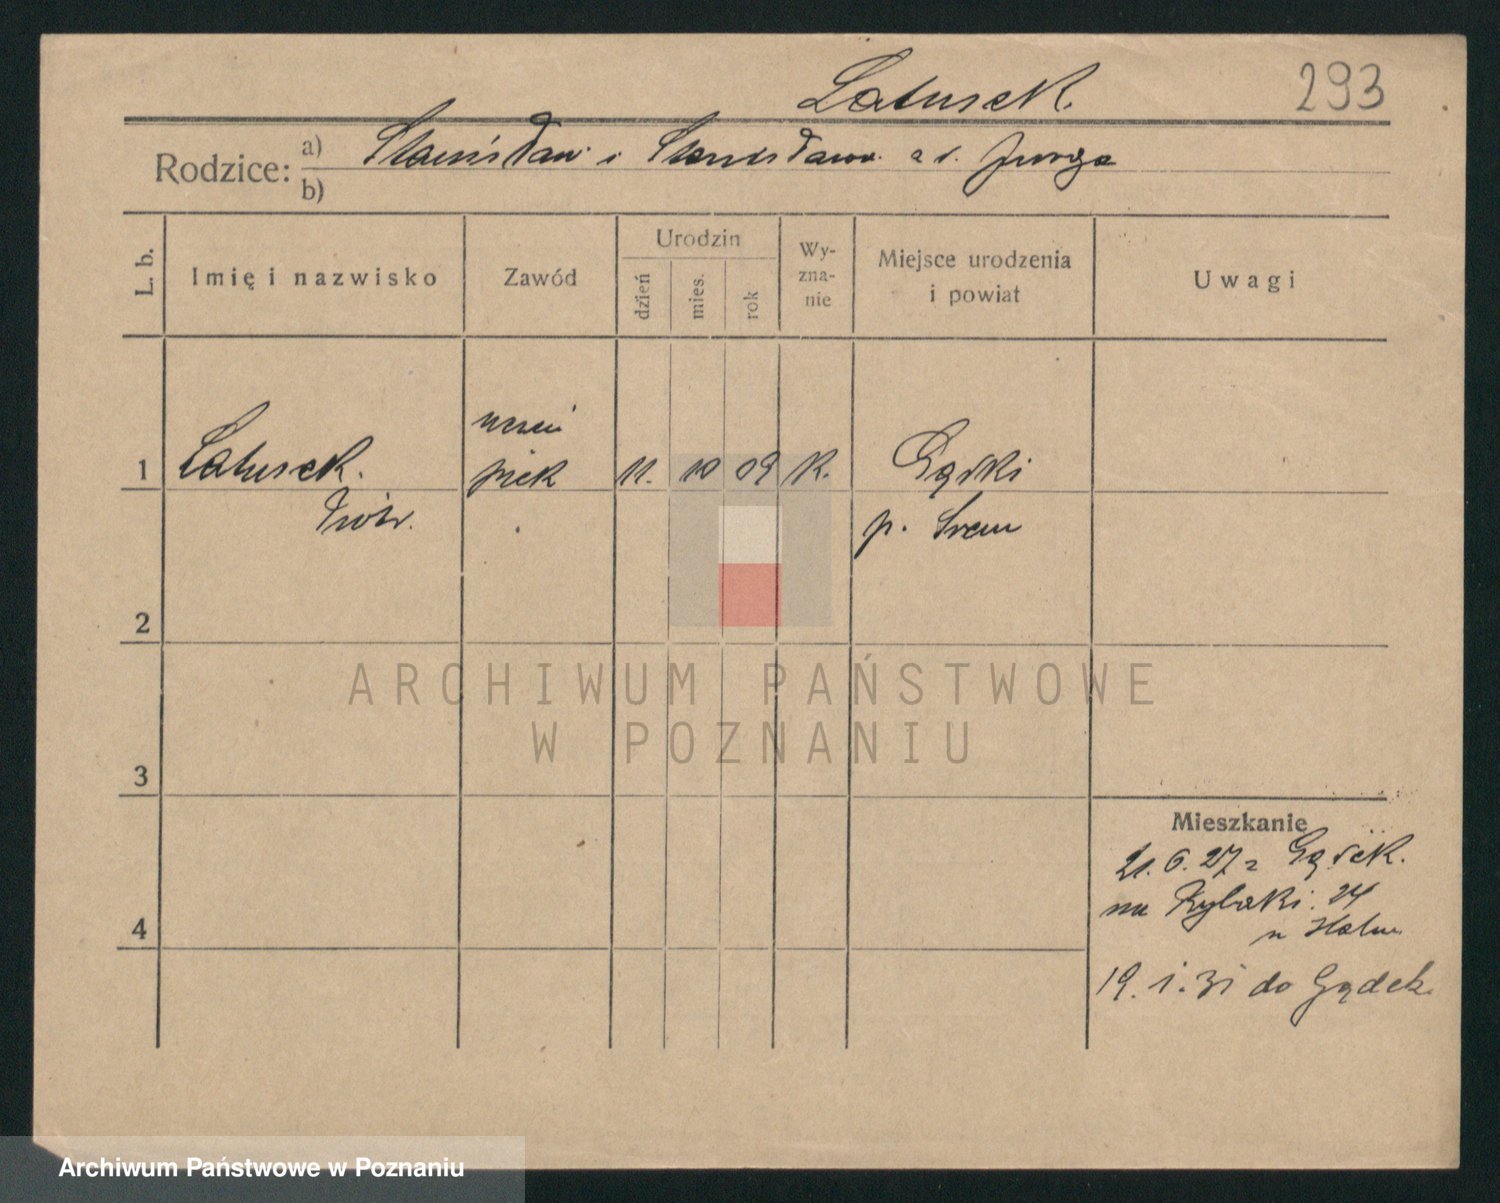 Latusek.
293
Rodzice:
a) Stanisław i Stanisława z d. Jurga
b)
L. b.
Imię i nazwisko
Zawód
Urodzin
dzień
mies.
rok
Wy-
zna-
nie
Miejsce urodzenia
i powiat
Uwagi
1
Latusek.
Piotr.
uczeń
piek
11.
10
09
K.
Górki
p. Srem
2
3
4
ARCHIWUM PAŃSTWOWE
W POZNANIU
Mieszkanie
21. 6. 27 z
na Rybaki. 24
19. 1. 31 do Gądek.
Archiwum Państwowe w Poznaniu